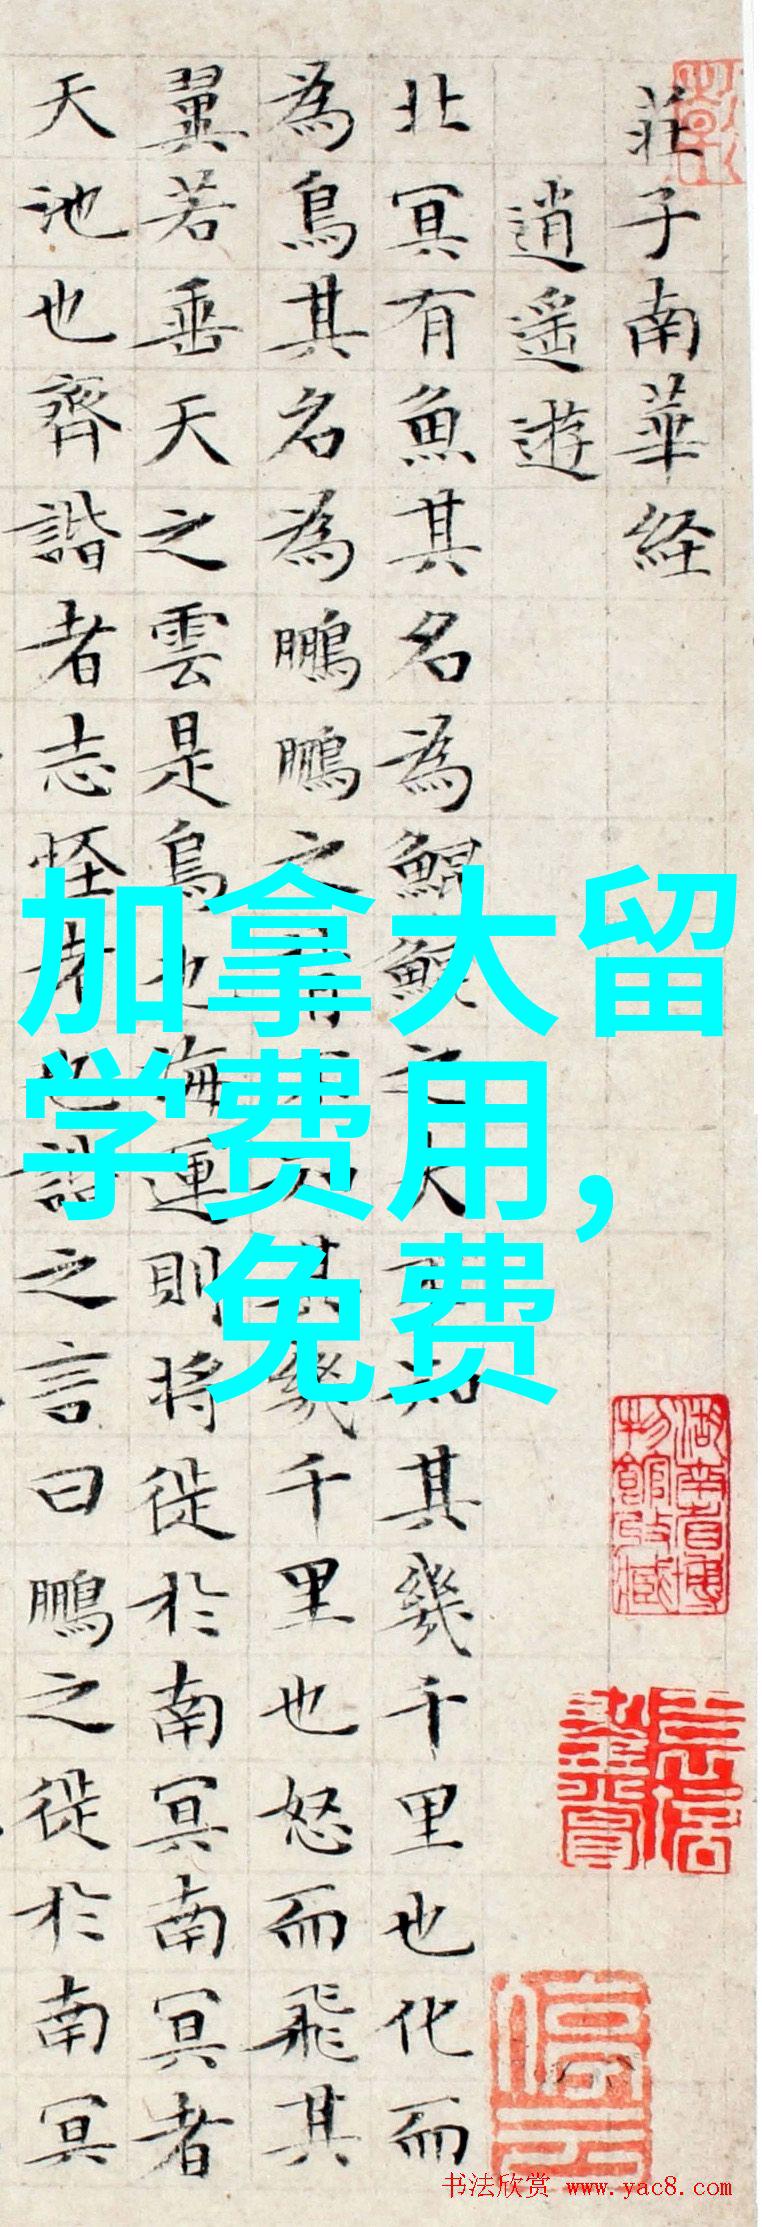 莊子南華経
逍遥遊
北冥有魚其名為鯤鯤之大不知其幾千里也化而
為鳥其名為鵬鵬之背不知其幾千里也怒而飛其
翼若垂天之雲是鳥也海運則将徙於南冥南冥者
天池也齊諧者志怪者也諧之言曰鵬之徙於南冥
加拿大留
学费用,
免费
湖南省博物館收藏
停云
书法欣赏 www.yac8.com